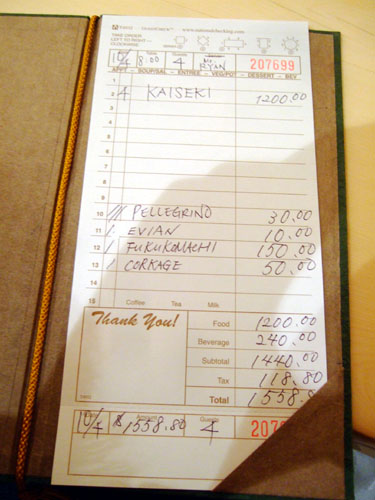 www.nationalchecking.com
TAKE ORDER
LEFT TO RIGHT
CLOCKWISE
10/4 8:00 4 Mr. RYAN 207699
APPT - SOUP/SAL - ENTREE - VEG/POT - DESSERT - BEV
1
2 4 KAISEKI 1200.00
3
4
5
6
7
8
9
10 /// PELLEGRINO 30.00
11 1 EVIAN 10.00
12 1 FUKUKOMACHI 150.00
13 1 CORKAGE 50.00
14
15 Coffee Tea Milk
Thank You!
Food 1200.00
Beverage 240.00
Subtotal 1440.00
Tax 118.80
Total 1,558.
10/4 $1558.80 Guests 4 207